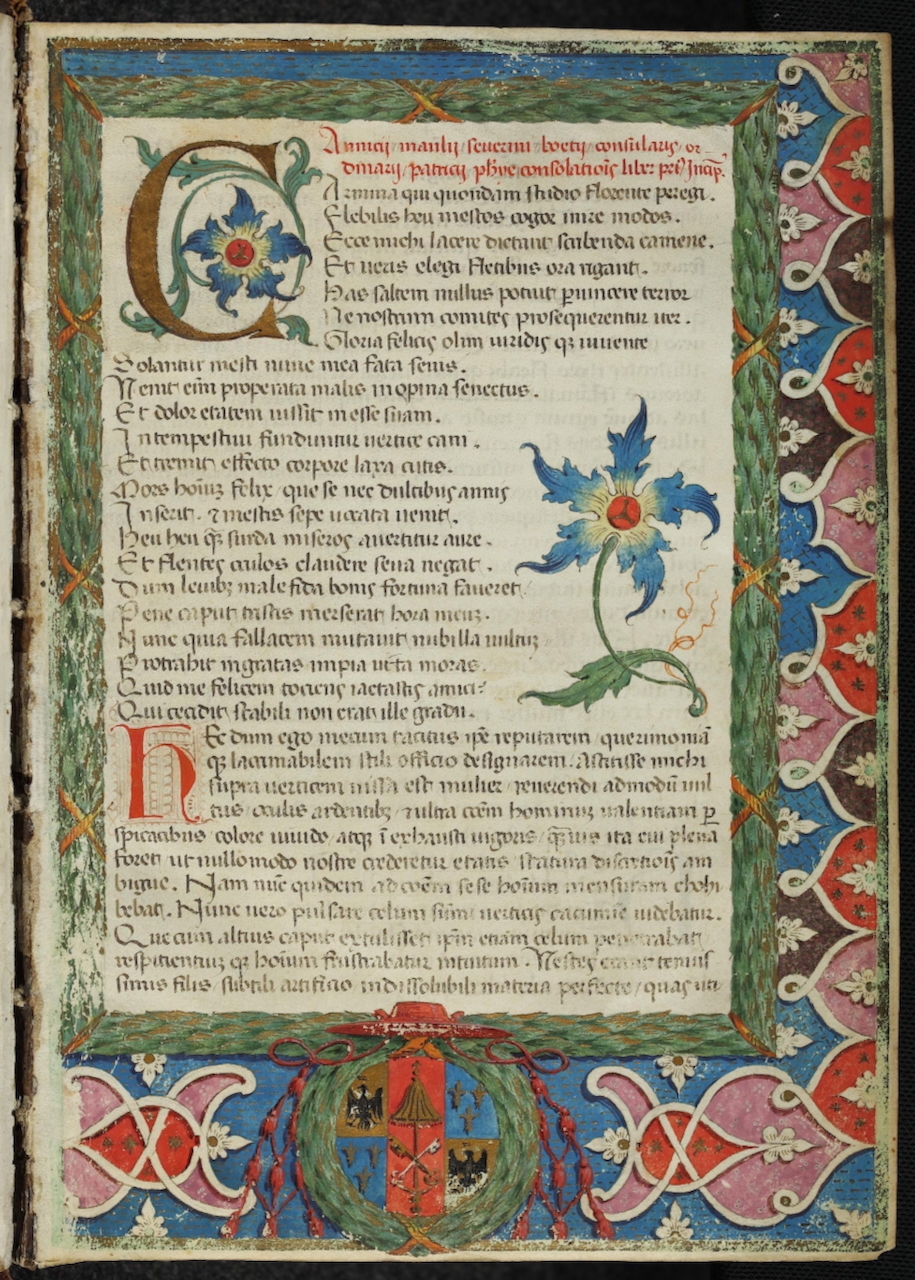 Annicij manlij seuerini boetij consularis or-
dinarij patricij phye consolatiois liber pri' Incip.
CArmina qui quondam studio florente peregi.
Flebilis heu mestos cogor inire modos.
Ecce michi lacere dictant scribenda camene.
Et ueris elegi fletibus ora rigant.
Has saltem nullus potuit puincere terror
Ne nostrum comites prosequerentur iter.
Gloria felicis olim uiridis qz iuuente
Solantur mesti nunc mea fata senis.
Uenit eim properata malis inopina senectus.
Et dolor etatem iussit inesse suam.
Intempestiui funduntur uertice cani.
Et tremit effecto corpore laxa cutis.
Mors hoiuz felix, que se nec dulcibus annis
Inserit. & mestis sepe uocata uenit.
Heu heu qz surda miseros auertitur aure.
Et flentes oculos claudere seua negat.
Dum leuibz male fida bonis fortuna faueret
Pene caput tristis merserat hora meuz.
Nunc quia fallacem mutauit nubilla uultuz
Protrahit ingratas impia uita moras.
Quid me felicem tociens iactastis amici:
Qui cecidit stabili non erat ille gradu.
Hec dum ego mecum tacitus ipe reputarem / querimoniā
qz lacrimabilem stili officio designarem. Astitisse michi
supra uerticem uissa est mulier / reuerendi admodū uul
tus / oculis ardentibz / & ultra coēm hominuz ualentiam p
spicacibus / colore uiuido / atqz ī exhausti uigoris / qzuis ita eui plena
foret / ut nullo modo nostre crederetur etatis statura discretiois am
bigue. Nam nūc quidem ad coēm sese hoium mensuram chohi
bebat. Nunc uero pulsare celum sūmi uerticis cacumie uidebatur.
Que cum altius caput extulisset ipm etiam celum penetrabat
respitientiuz qz hoium frustrabatur intuitum. Uestes erant tenuis
simis filis / subtili artificio indissolubili materia perfecte / quas uti